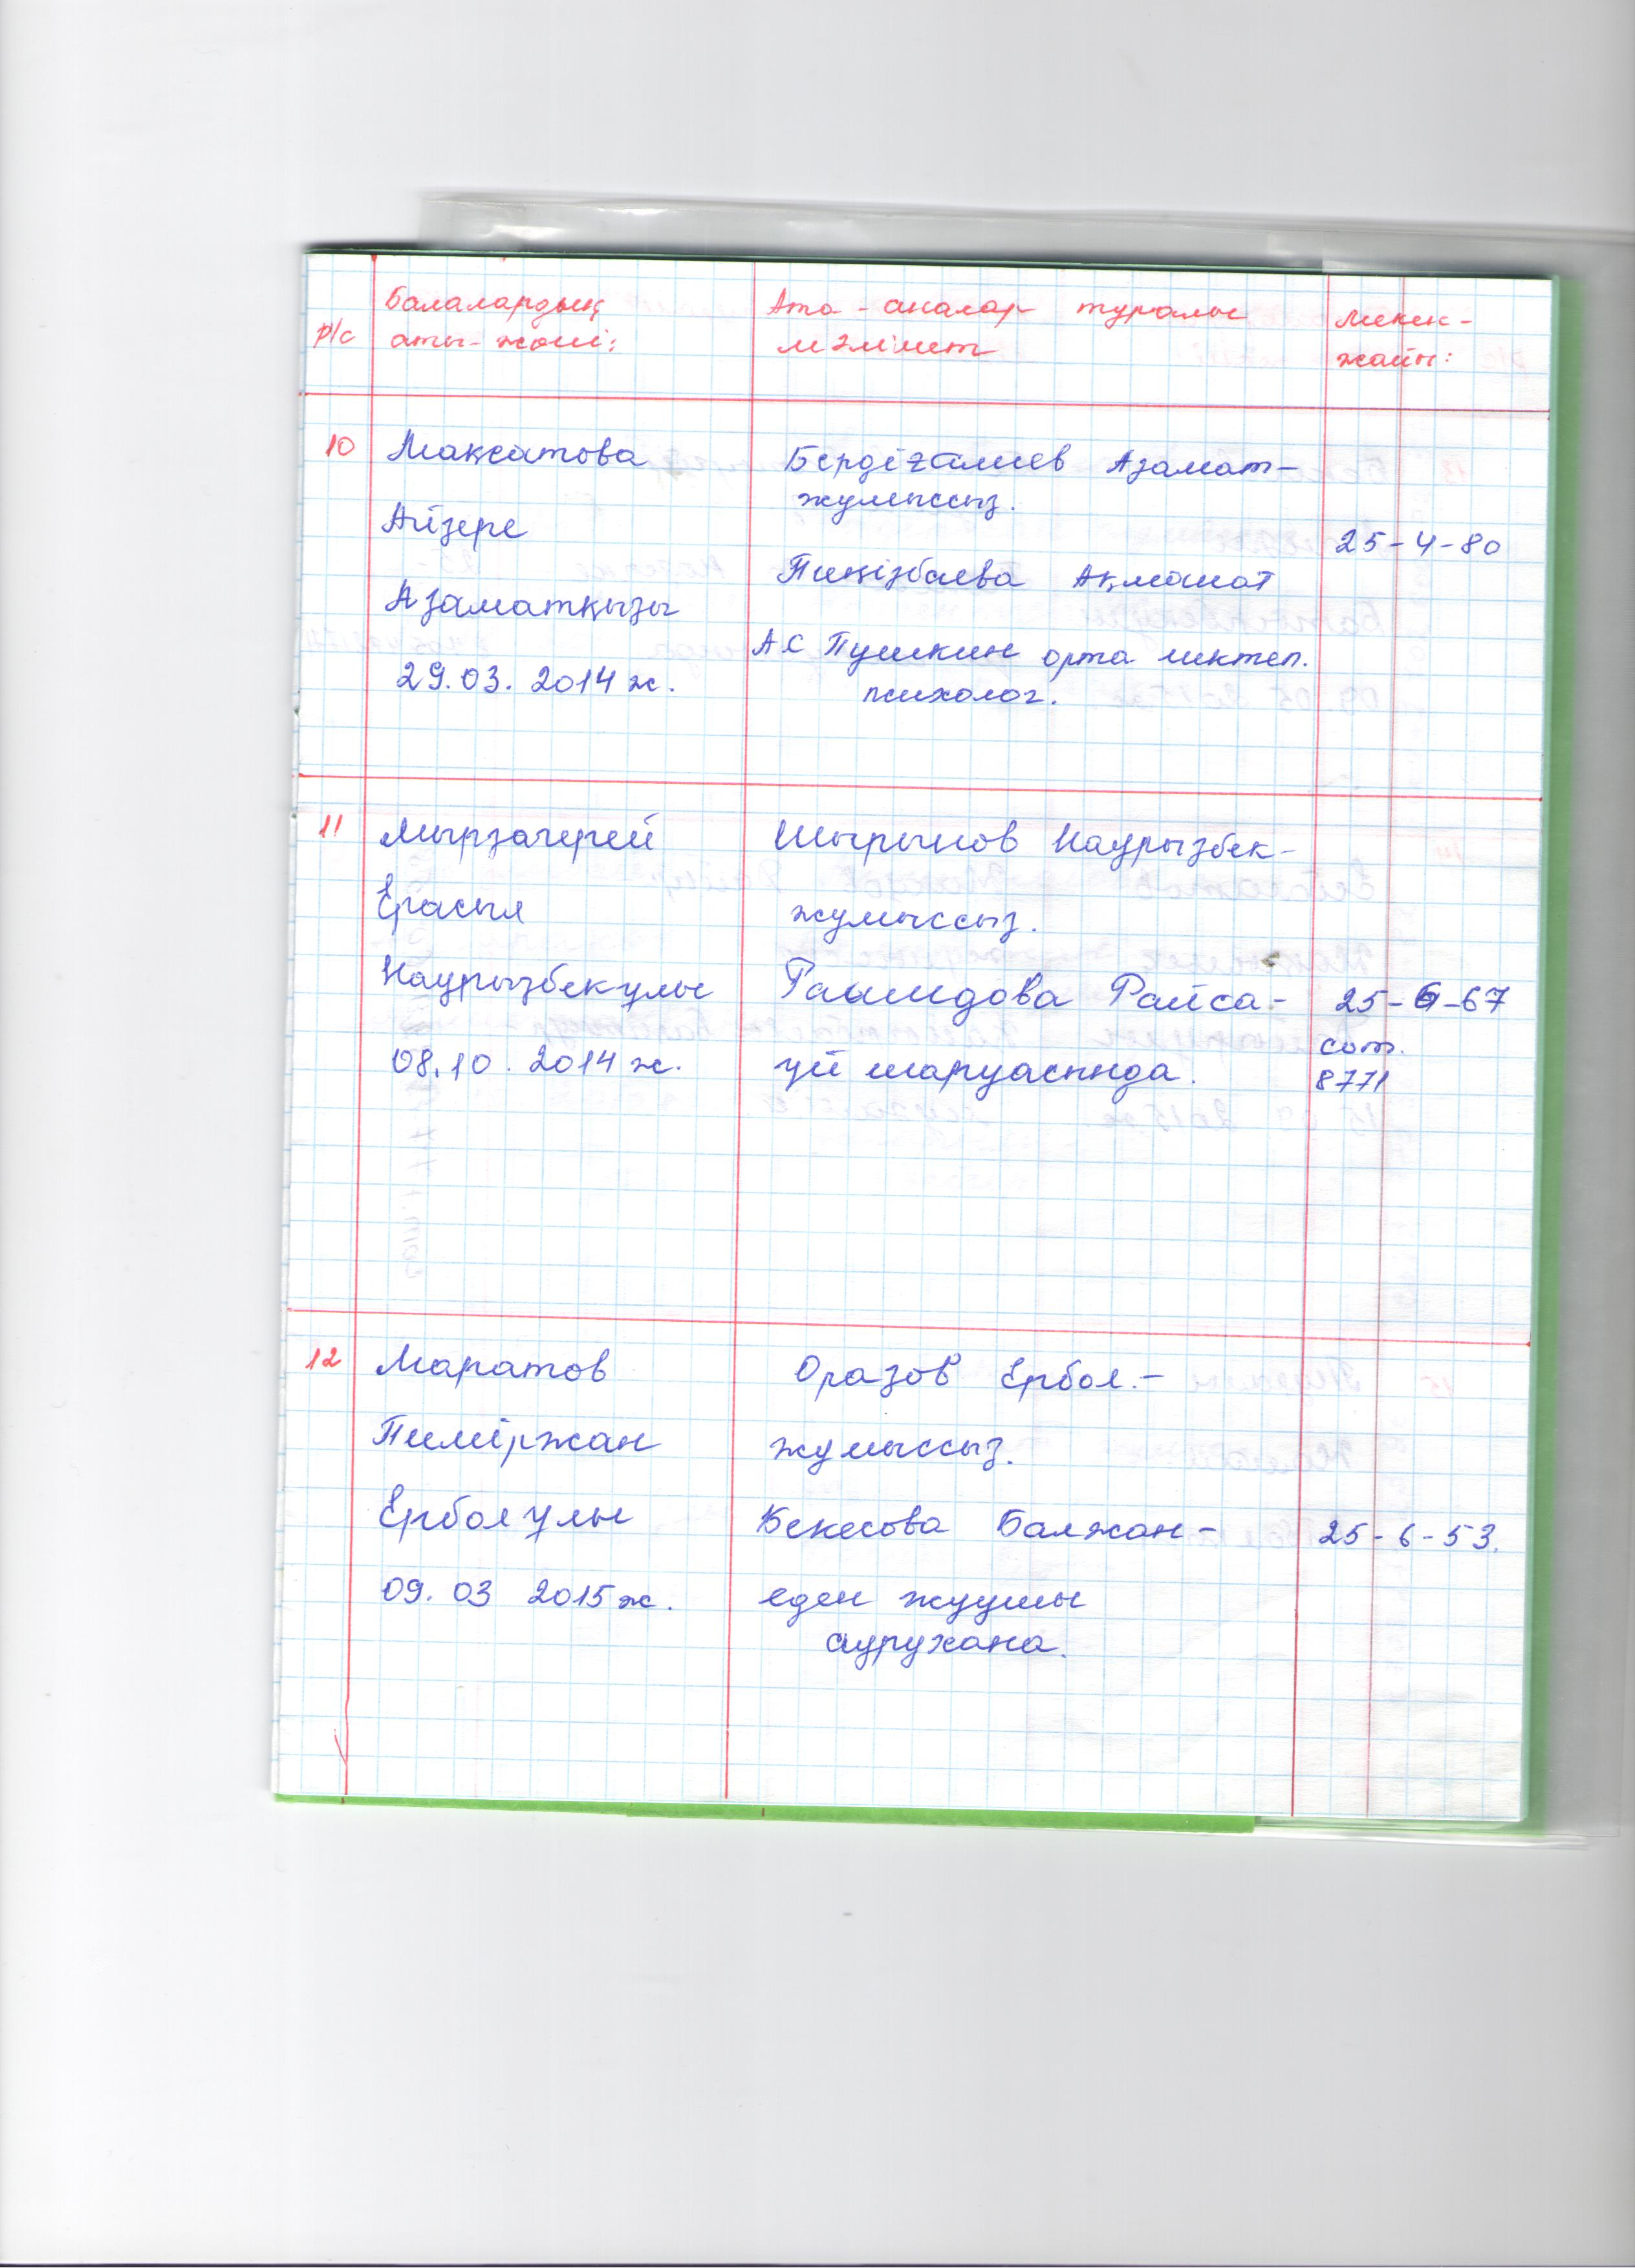 р/с
Балалардың
аты-жөні:
Ата-аналар туралы
мәлімет
Мекен-
жайы:
10
Мақсатова
Айзере
Азаматқызы
29.03.2014 ж.
Бердіғалиев Азамат-
жумыссыз.
Теңізбаева Ақманат
А.С Пушкин орта мектеп.
психолог.
25-4-80
11
Мырзагерей
Ерасыл
Наурызбекулы
08.10.2014 ж.
Шырынов Наурызбек-
жумыссыз.
Рашидова Раиса-
үй шаруасында.
25-6-67
сот.
8771
12
Маратов
Теміржан
Ерболұлы
09.03 2015 ж.
Оразов Ербол.-
жумыссыз.
Бекесова Балжан-
еден жуушы
аурухана.
25-6-53.